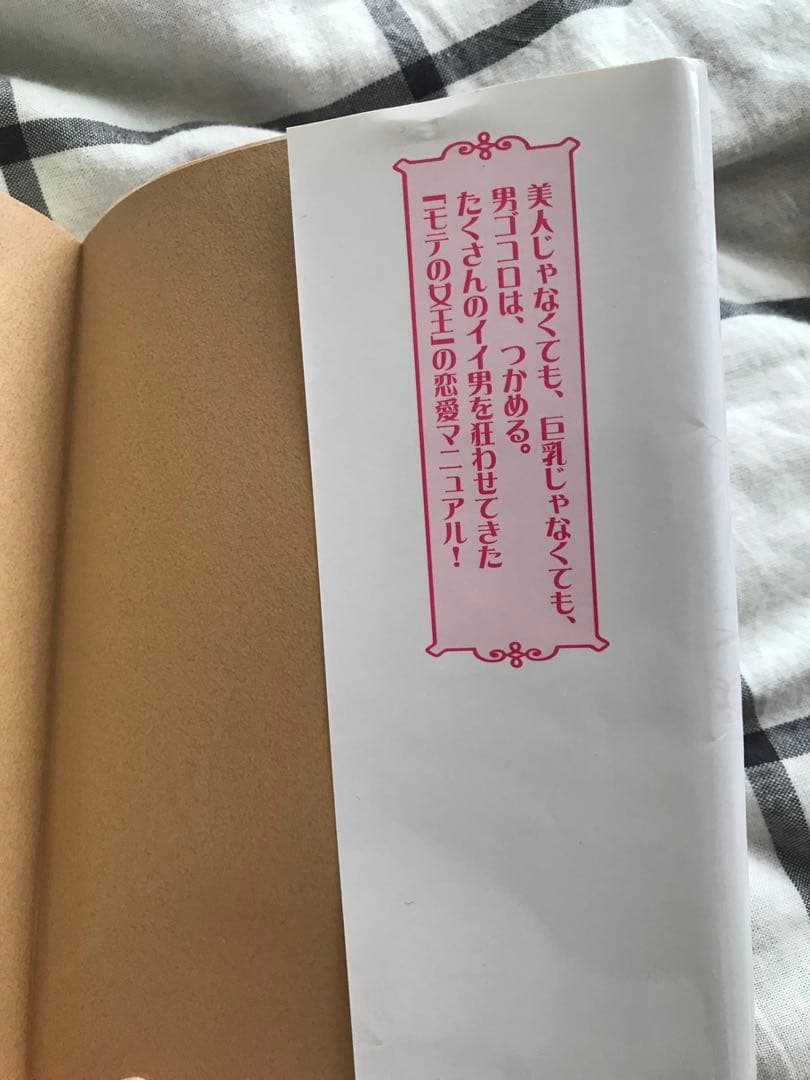 美人じゃなくても、巨乳じゃなくても、
男ゴコロは、つかめる。
たくさんのイイ男を狂わせてきた
『モテの女王』の恋愛マニュアル！